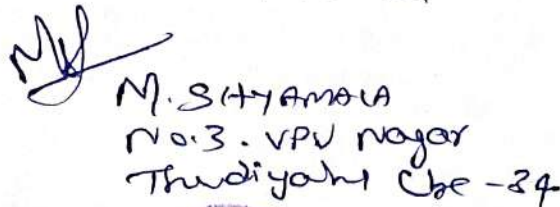 M. SHYAMALA
No.3. VPV Nagar
Thudiyalur Cbe - 34